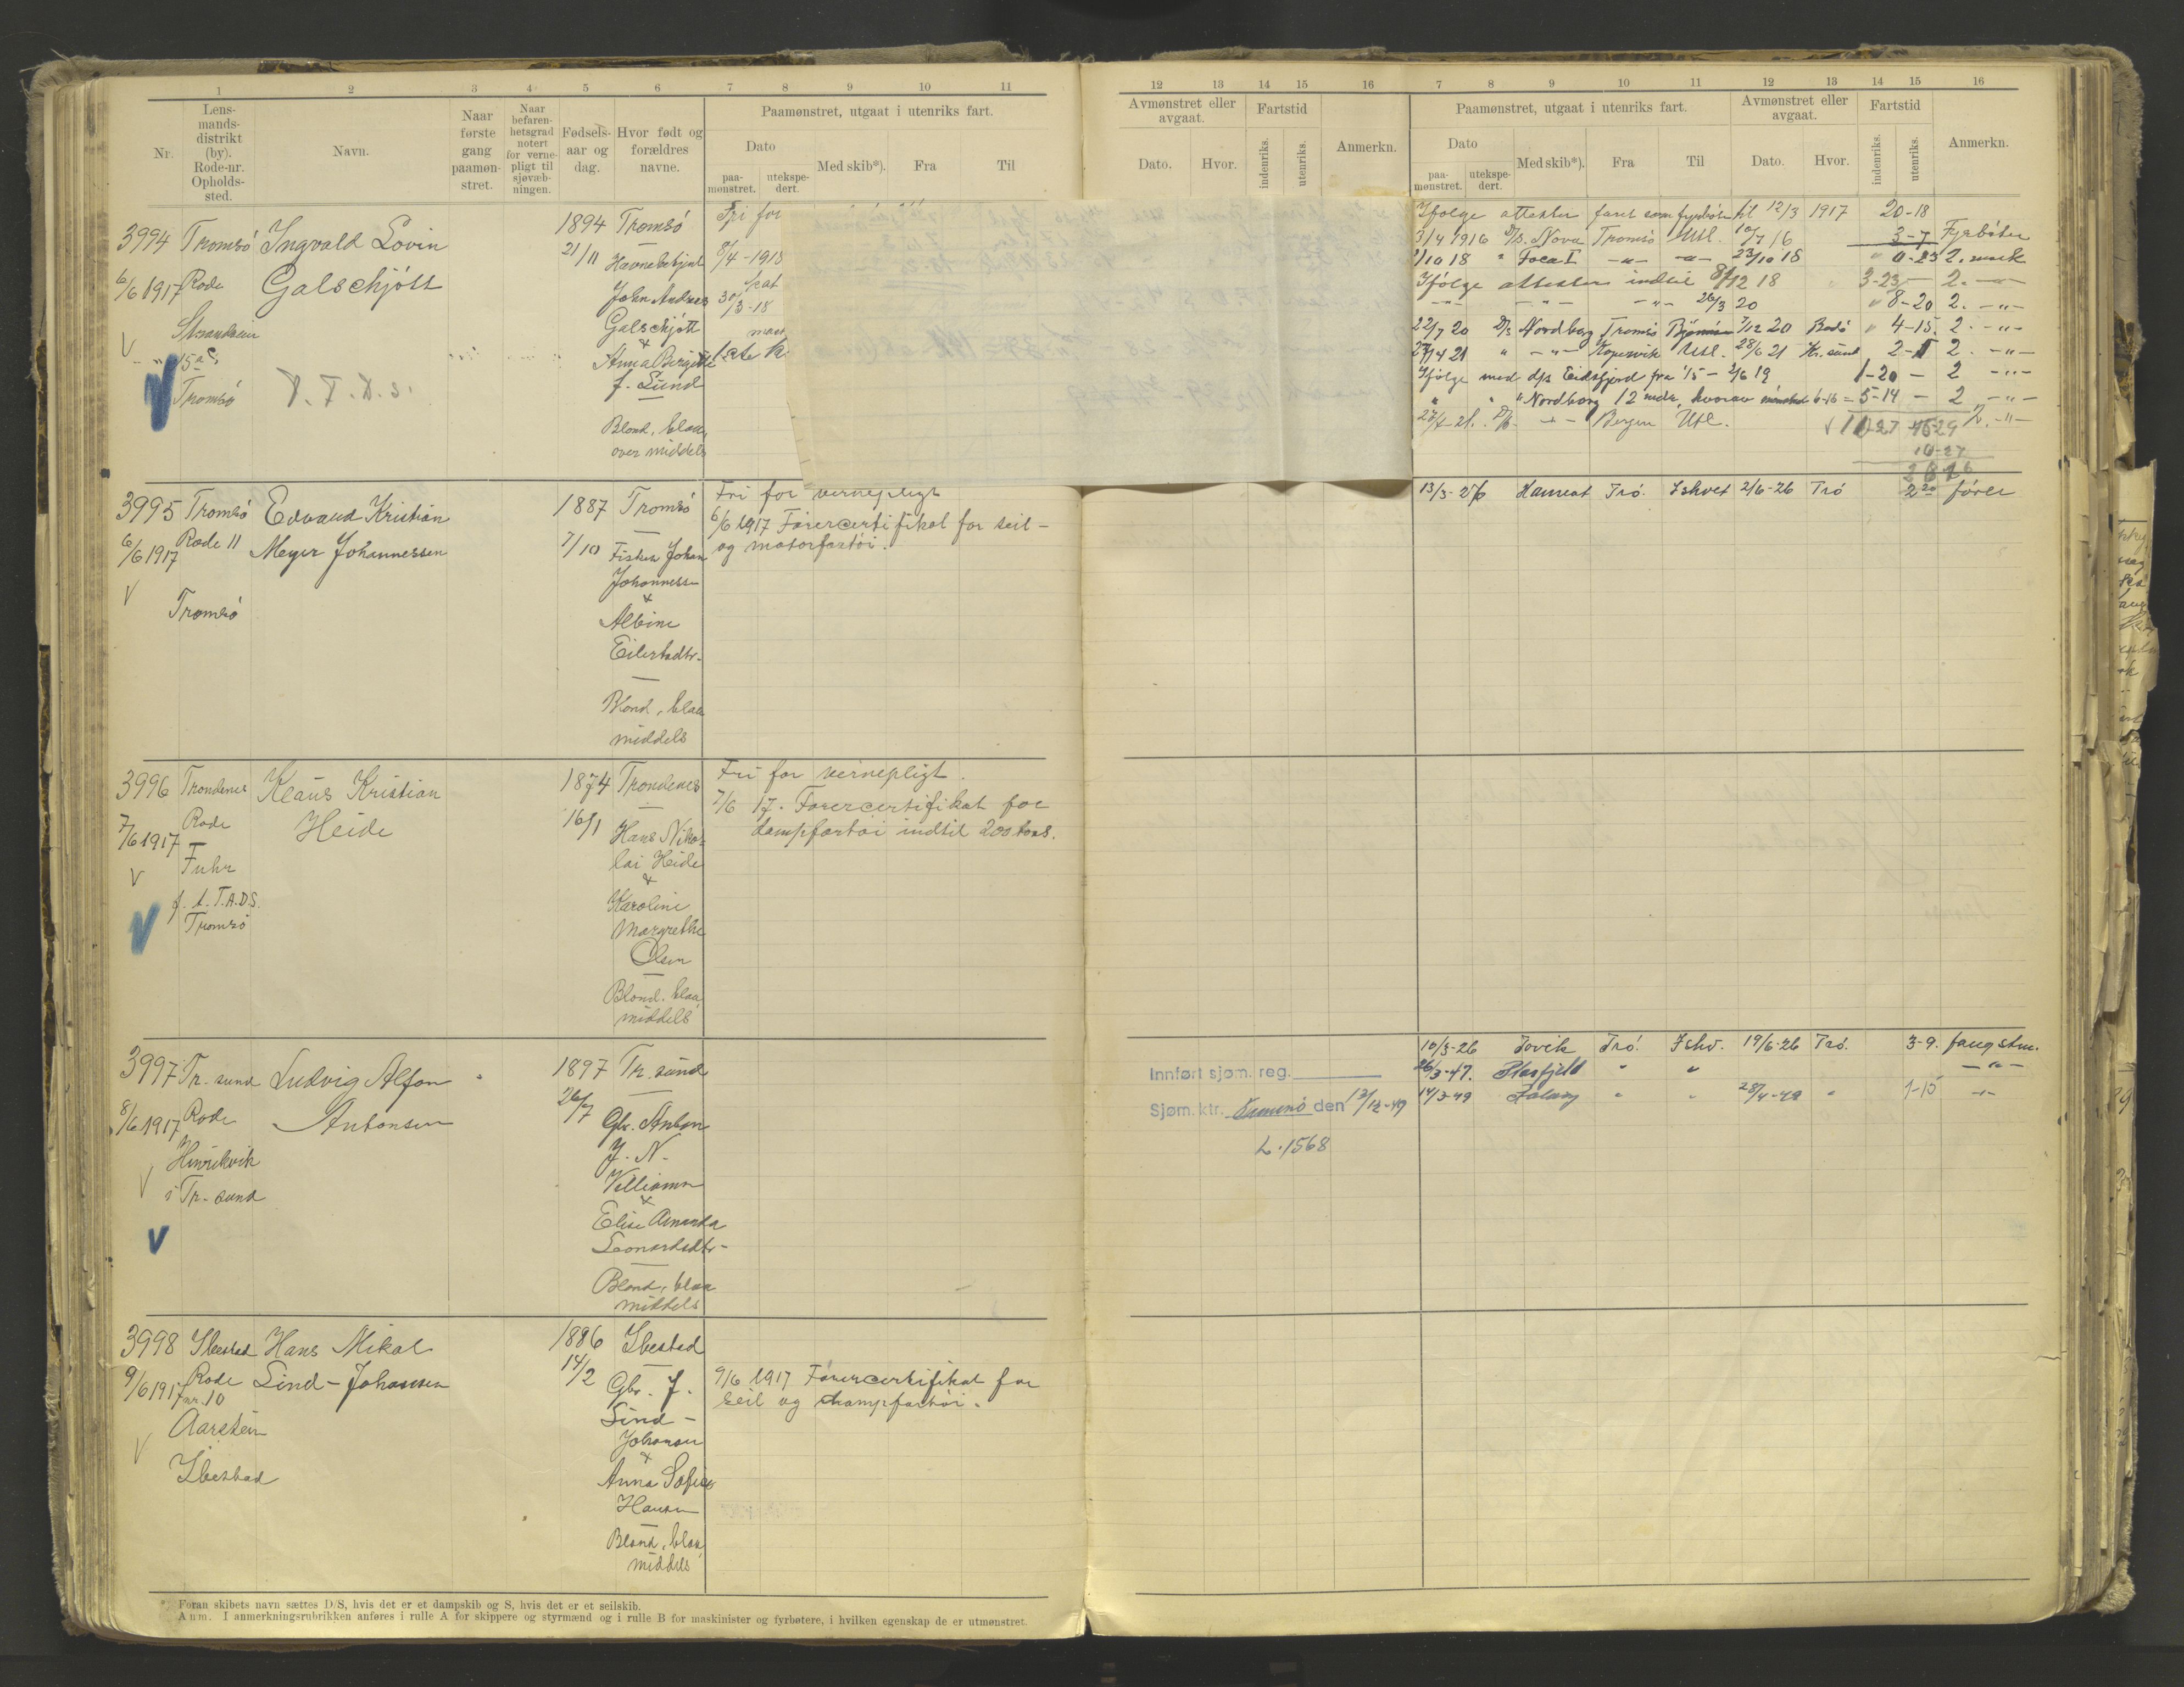 1 2 3 4 5 6 7 8 9 10 11
Nr.
Lens-
mands-
distrikt
(by).
Rode-nr.
Opholds-
sted.
Navn.
Naar
første
gang
paamøn-
stret.
Naar
befaren-
hetsgrad
notert
for verne-
pligt til
sjøvæb-
ningen.
Fødsels-
aar og
dag.
Hvor født og
forældres
navne.
Paamønstret, utgaat i utenriks fart.
Dato
paa-
mønstret.
utekspe-
dert.
Med skib*).
Fra
Til
12 13 14 15 16
Avmønstret eller
avgaat.
Dato.
Hvor.
Fartstid
indenriks.
utenriks.
Anmerkn.
7 8 9 10 11 12 13 14 15 16
Paamønstret, utgaat i utenriks fart.
Dato
paa-
mønstret.
utekspe-
dert.
Med skib*).
Fra
Til
Avmønstret eller
avgaat.
Dato.
Hvor.
Fartstid
indenriks.
utenriks.
Anmerkn.
3994
6/6 1917
V
Tromsö
Rode
Strandveien
Tromsö
Ingvald Lovin
Galschjött
D.T.D.S.
1894
21/11
Tromsö
Havnebetjent
John Andreas
Galschjött
&
Anna Bergitte
f. Lund
Blond, blaa,
over middels
Fri for
8/4-1918
30/3-18
Ifölge attester faret som fyrböter til 12/3 1917 20-18
3/4 1916 D/s. Nova Tromsö Utl. 10/7 16 3-7 Fyrböter
/10 18 " Foca I -"- -"- 23/10 18 " 0-23 2. mask
Ifölge attester indtil 8/12 18 3-23 2. -"-
-"- -"- -"- 26/3 20 " 8-20 2. -"-
22/7 20 D/s Nordborg Tromsö 7/12 20 Bodö " 4-15. 2. -"-
27/4 21 " -"- Kopervik Utl. 28/6 21 Kr. sund 2. -"-
Ifölge med d/s Eidsfjord fra 1/5 - 2/6 19 1-20 - 2 -"-
" " " Nordborg 12 mdr, hvorav 6-16 = 5-14 - 2 -"-
D/s. -"- Bergen Utl. 2. -"-
3995
6/6 1917
V
Tromsö
Rode 11
Tromsö
Edvard Kristian
Meyer Johannessen
1887
7/10
Tromsö
Fisker Johan
Johannessen
&
Albine
Eilertsdtr.
Blond, blaa
middels
Fri for vernepligt
6/6 1917 Förercertifikat for seil-
og motorfartöi.
13/3-26 Havneat Trö. Ishvet 2/6-26 Trö 2 20 förer
3996
7/6 1917
V
Trondenes
Rode
Fuhr
f. t. T.A.D.S.
Tromsö
Klaus Kristian
Heide
1874
16/1
Trondenes
Hans Niko-
lai Heide
&
Karoline
Margrethe
Olsen
Blond. blaa,
middels
Fri for vernepligt.
7/6 17. Förercertifikat for
dampfartöi indtil 200 tons.
3997
8/6 1917
V
Tr. sund
Rode
Hinrikvik
i Tr. sund
Ludvig Alfon
Antonsen
1897
26/7
Tr. sund
Gbr. Anton
J. N.
Villiamn
&
Elise Amanda
Leonardsdtr-
Blond, blaa
middels
Innført sjøm. reg.
Sjøm.ktr. Tromsö den 12/12-49
L. 1568
10/3-26 Jovik Trö. Ishv. 19/6-26 Trö. 3-9. fangstm.
26/3-47. Blaafjeld " " -"-
14/3-49 " " 28/4-49 " 1-15 -"-
3998
9/6 1917
V
Ibestad
Rode
nr. 10
Aarstein
Ibestad
Hans Mikal
Lind-Johansen
1886
14/2
Ibestad
Gbr. J.
Lind-
Johansen
&
Anna Sofie
Hansen
Blond, blaa,
middels
9/6 1917 Förercertifikat for
seil og dampfartöi.
*. Foran skibets navn sættes D/S, hvis det er et dampskib og S, hvis det er et seilskib.
Anm. I anmerkningsrubrikken anføres i rulle A for skippere og styrmænd og i rulle B for maskinister og fyrbøtere, i hvilken egenskap de er utmønstret.